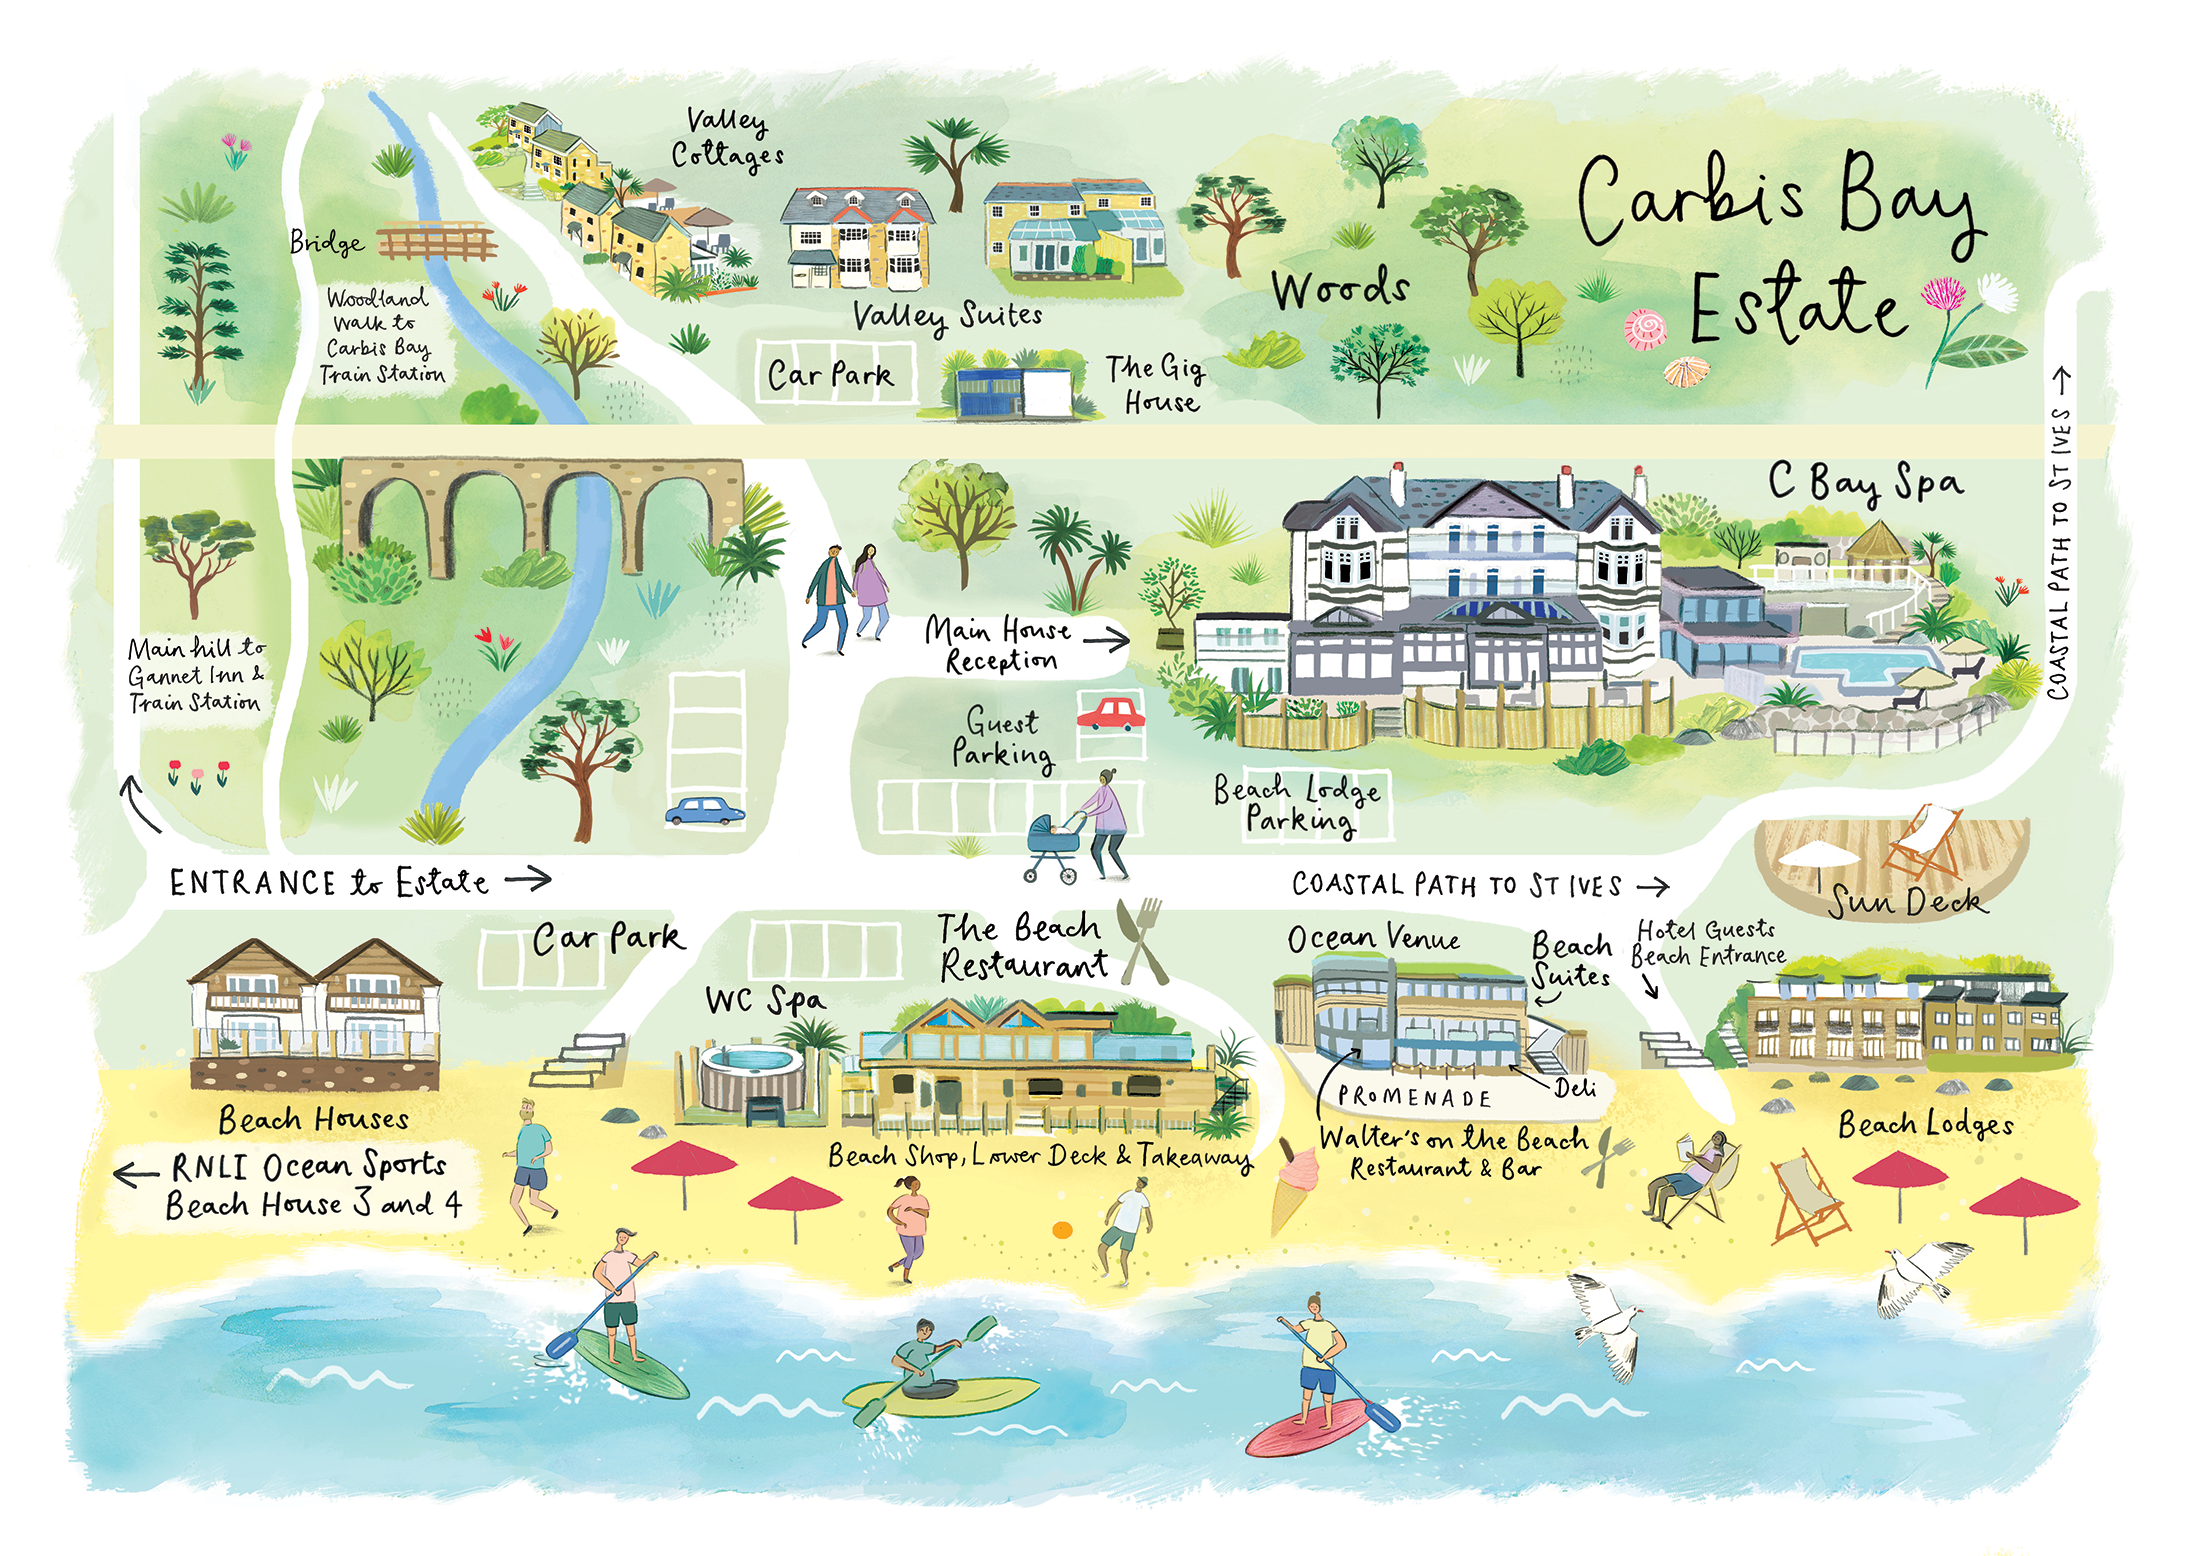 Carbis Bay
Estate
Valley
Cottages
Bridge
Woodland
Walk to
Carbis Bay
Train Station
Valley Suites
Woods
Car Park
The Gig
House
COASTAL PATH TO ST IVES →
C Bay Spa
Main House
Reception →
Main hill to
Gannet Inn &
Train Station
Guest
Parking
Beach Lodge
Parking
ENTRANCE to Estate →
COASTAL PATH TO ST IVES →
Sun Deck
Car Park
The Beach
Restaurant
Ocean Venue
Beach
Suites
Hotel Guests
Beach Entrance
WC Spa
PROMENADE
Deli
Beach Houses
Walter's on the Beach
Restaurant & Bar
Beach Lodges
Beach Shop, Lower Deck & Takeaway
← RNLI Ocean Sports
Beach House 3 and 4